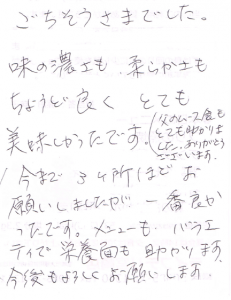 ごちそうさまでした。
味の濃さも、柔らかさも
ちょうど良く とても
美味しかったです。
(父のムース食も
とても助かりま
した。ありがとう
ございます。
今まで 3ヶ所ほど お
願いしましたが 一番良か
ったです。メニューも バラエ
ティで 栄養面も 助かります
今後もよろしく お願いします。